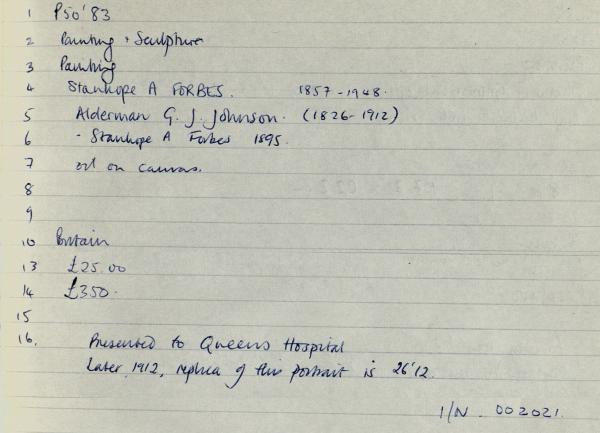 1 P50'83
2 Painting + Sculpture
3 Painting
4 Stanhope A FORBES. 1857-1948.
5 Alderman G. J. Johnson. (1826-1912)
6 - Stanhope A Forbes 1895.
7 oil on canvas.
8
9
10 Britain
13 £25.00
14 £350.
15
16. Presented to Queens Hospital
Later, 1912, replica of this portrait is 26'12.
I/N. 002021.